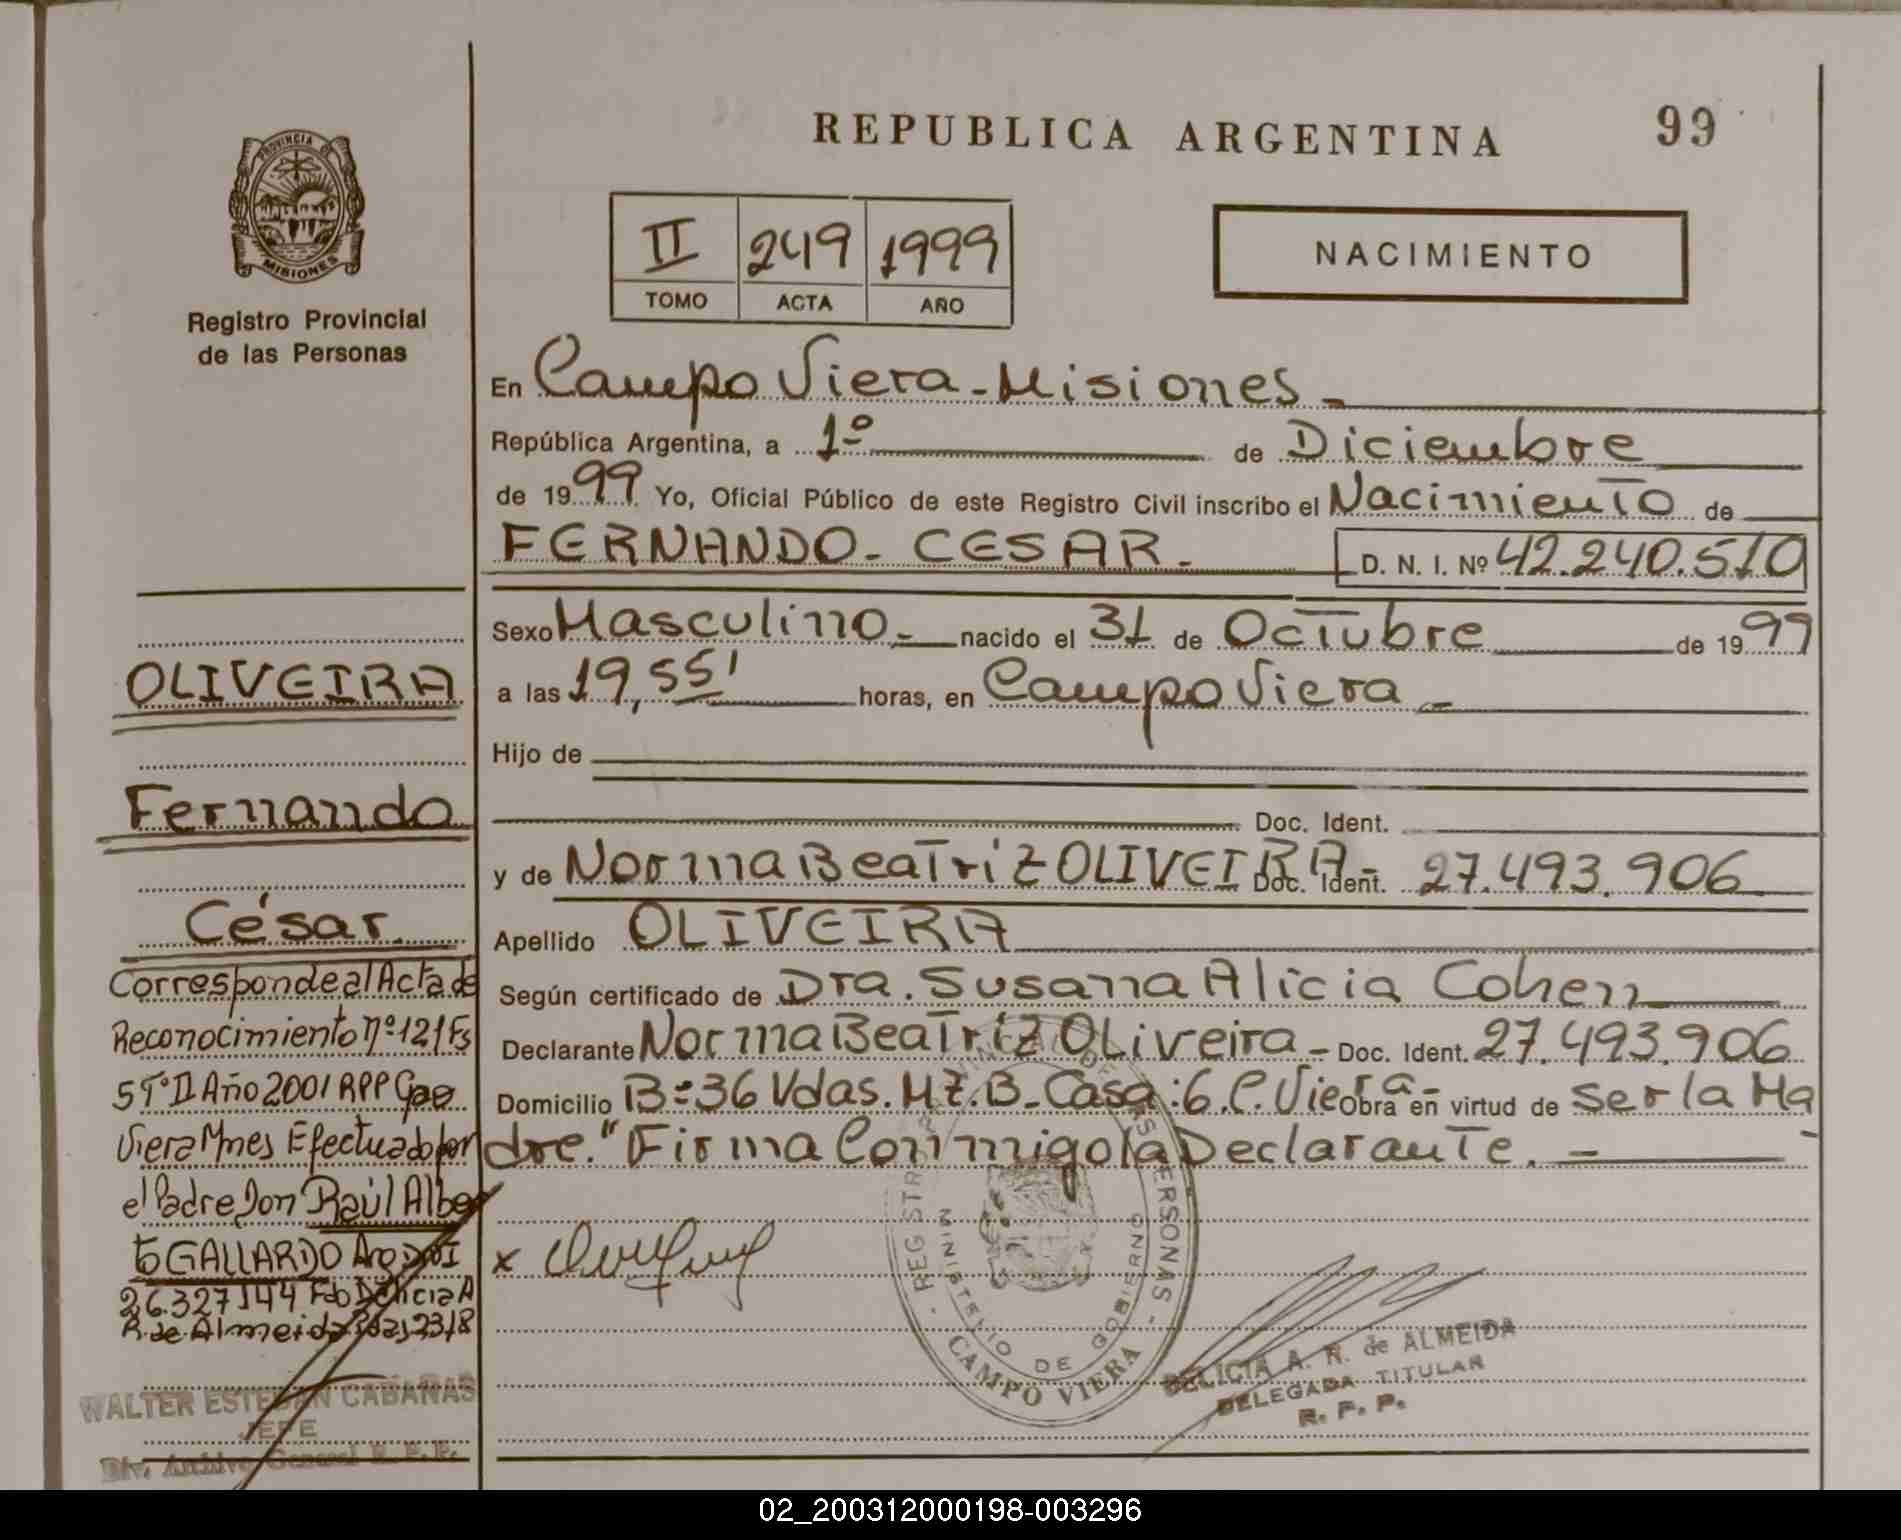 REPUBLICA ARGENTINA
99
PROVINCIA DE
MISIONES
Registro Provincial
de las Personas
II 249 1999
TOMO ACTA AÑO
NACIMIENTO
En Campo Viera - Misiones -
República Argentina, a 1º de Diciembre
de 1999 Yo, Oficial Público de este Registro Civil inscribo el Nacimiento de
FERNANDO - CESAR - D. N. I. Nº 42.240.510
Sexo Masculino - nacido el 31 de Octubre de 1999
a las 19,55' horas, en Campo Viera -
Hijo de
Doc. Ident.
y de Norma Beatriz OLIVEIRA - Doc. Ident. 27.493.906
Apellido OLIVEIRA
Según certificado de Dra. Susana Alicia Cohen
Declarante Norma Beatriz OLiveira - Doc. Ident. 27.493.906
Domicilio Bº 36 Vdas. MZ. B - Casa: 6. C. Viera - Obra en virtud de ser la Ma
dre." Firma Conmigo la Declarante. -
OLIVEIRA
Fernando
César
Corresponde al Acta de
Reconocimiento nº 121 Fs
5 Tº II Año 2001 RPP Cpo
Viera Mnes Efectuado por
el Padre Don Raúl Alber
to GALLARDO Arg DNI
26.327.144 Fdo Delicia A
R. de Almeida Pdas 23/8
WALTER ESTEBAN CABAÑAS
JEFE
Div. Archivo General R. P. P.
x
MINISTERIO DE GOBIERNO
CAMPO VIERA
DELICIA A. R. de ALMEIDA
DELEGADA TITULAR
R. P. P.
02_200312000198-003296